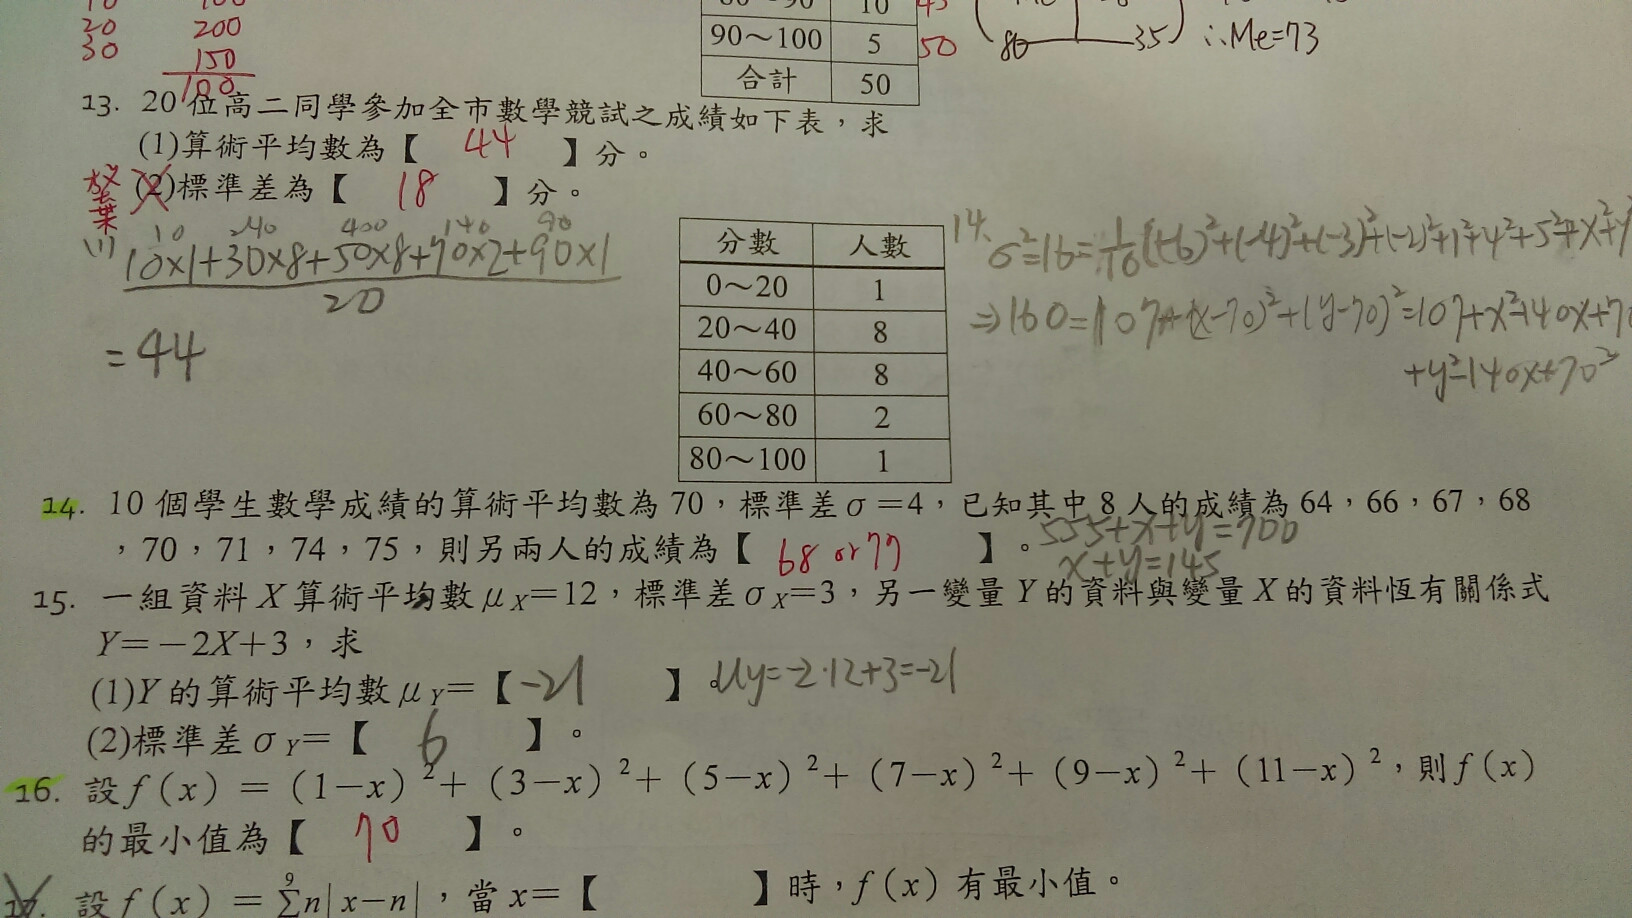 20
30
200
150
100
10 45
90～100 5 50
合計 50
80 35 ∴Me=73
13. 20 位高二同學參加全市數學競試之成績如下表，求
(1)算術平均數為【 44 】分。
(2)標準差為【 18 】分。
(1)
10 240 400 140 90
10×1+30×8+50×8+70×2+90×1
20
=44
分數 人數
0～20 1
20～40 8
40～60 8
60～80 2
80～100 1
14. σ²=16=1/10((-6)²+(-4)²+(-3)²+(-2)²+1²+4²+5²+x²+y²
⇒160=107+(x-70)²+(y-70)²=107+x²-140x+70
+y²-140x+70²
14. 10 個學生數學成績的算術平均數為 70，標準差σ=4，已知其中 8 人的成績為 64，66，67，68
，70，71，74，75，則另兩人的成績為【 68 or 77 】。
555+x+y=700
x+y=145
15. 一組資料 X 算術平均數μX=12，標準差σX=3，另一變量 Y 的資料與變量 X 的資料恆有關係式
Y=-2X+3，求
(1)Y 的算術平均數μY=【-21 】。 μy=-2·12+3=-21
(2)標準差σY=【 6 】。
16. 設 f(x) = (1-x)²+ (3-x)²+ (5-x)²+ (7-x)²+ (9-x)²+ (11-x)²，則 f(x)
的最小值為【 70 】。
17. 設 f(x) = 9 Σn|x-n|，當 x=【 】時，f(x) 有最小值。